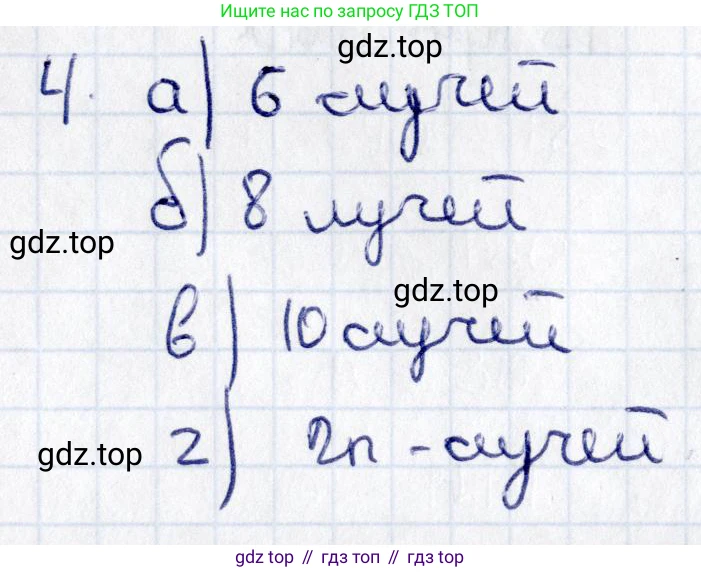 Ищите нас по запросу ГДЗ ТОП
gdz.top
4. а) 6 лучей
б) 8 лучей
gdz.top
gdz.top
в) 10 лучей
г) 2n - лучей
gdz.top
gdz top // гдз топ // gdz top